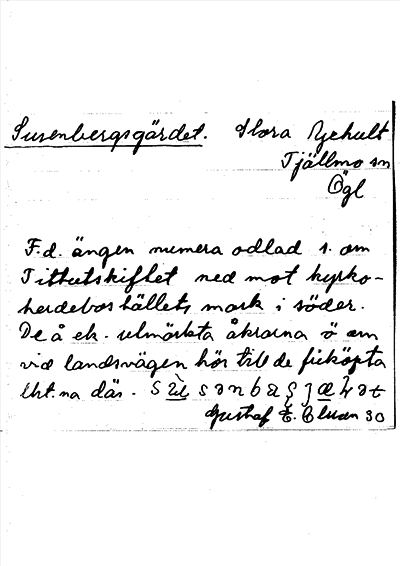 Susenbergsgärdet. Stora Gehult
Tjällmo sn
Ögl
F.d. ängen numera odlad s. om
Tithutskiftet ned mot kyrko-
herdebos hällets mark i söder.
De å ek. utmärkta åkrarna ö om
vid landsvägen hör till de friköpta
lht.na där.
Gustaf E. Cluan 30